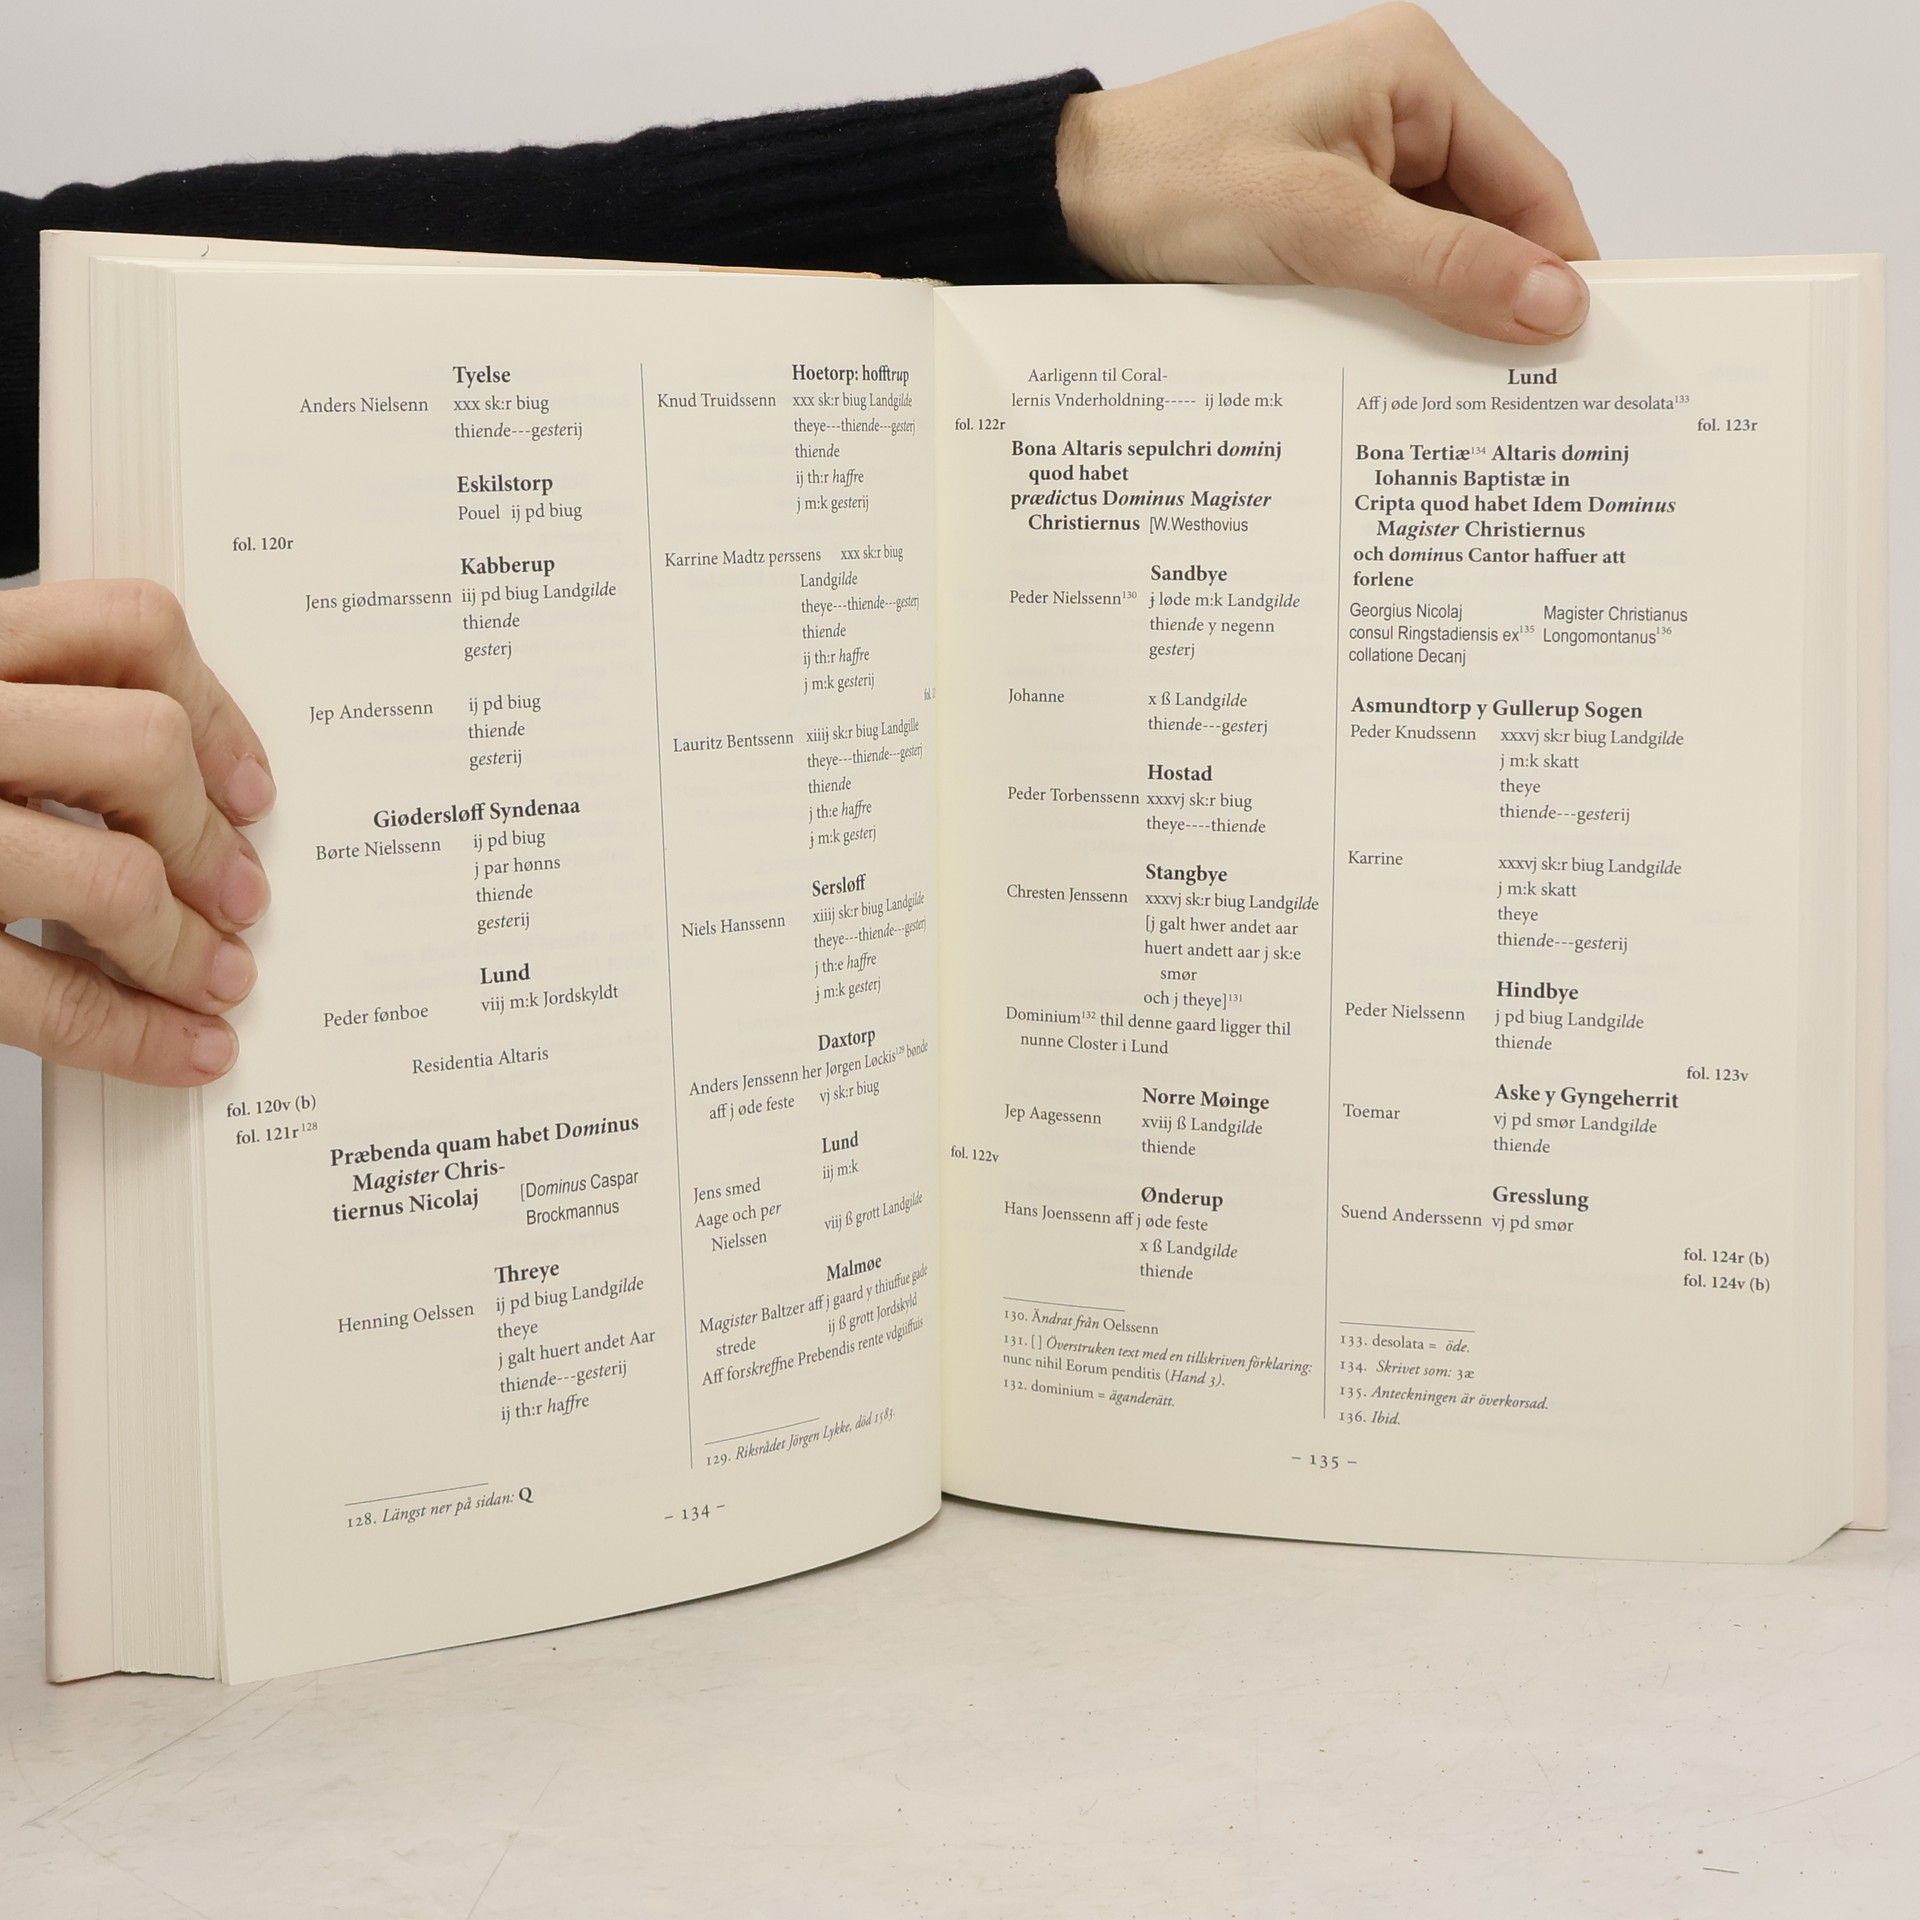 Tyelse
Anders Nielsenn xxx sk:r biug
thiende---gesterij
Eskilstorp
Pouel ij pd biug
fol. 120r
Kabberup
Jens giødmarssenn iij pd biug Landgilde
thiende
gesterj
Jep Anderssenn ij pd biug
thiende
gesterij
Giødersløff Syndenaa
Børte Nielssenn ij pd biug
j par hønns
thiende
gesterij
Lund
Peder fønboe viij m:k Jordskyldt
Residentia Altaris
fol. 120v (b)
fol. 121r128
Præbenda quam habet Dominus
Magister Chris-
tiernus Nicolaj [Dominus Caspar
Brockmannus
Threye
Henning Oelssen ij pd biug Landgilde
theye
j galt huert andet Aar
thiende---gesterij
ij th:r haffre
128. Längst ner på sidan: Q
Hoetorp: hofftrup
Knud Truidssenn xxx sk:r biug Landgilde
theye---thiende---gesterj
thiende
ij th:r haffre
j m:k gesterij
Karrine Madtz perssens xxx sk:r biug
Landgilde
theye---thiende---gesterj
thiende
ij th:r haffre
j m:k gesterij
Lauritz Bentssenn xiiij sk:r biug Landgille
theye---thiende---gesterj
thiende
j th:e haffre
j m:k gesterj
Sersløff
Niels Hanssenn xiiij sk:r biug Landgilde
theye---thiende---gesterj
j th:e haffre
j m:k gesterj
Daxtorp
Anders Jenssenn her Jørgen Løckis129 bønde
aff j øde feste vj sk:r biug
Lund
Jens smed iij m:k
Aage och per
Nielssen viij ß grott Landgilde
Malmøe
Magister Baltzer aff j gaard y thiuffue gade
strede ij ß grott Jordskyld
Aff forskreffne Prebendis rente vdgiiffuis
129. Riksrådet Jörgen Lykke, död 1583.
– 134 –
Aarligenn til Coral-
lernis Vnderholdning----- ij løde m:k
fol. 122r
Bona Altaris sepulchri dominj
quod habet
prædictus Dominus Magister
Christiernus [W.Westhovius
Sandbye
Peder Nielssenn130 j løde m:k Landgilde
thiende y negenn
gesterj
Johanne x ß Landgilde
thiende---gesterj
Hostad
Peder Torbenssenn xxxvj sk:r biug
theye----thiende
Stangbye
Chresten Jenssenn xxxvj sk:r biug Landgilde
[j galt hwer andet aar
huert andett aar j sk:e
smør
och j theye]131
Dominium132 thil denne gaard ligger thil
nunne Closter i Lund
Norre Møinge
Jep Aagessenn xviij ß Landgilde
thiende
fol. 122v
Ønderup
Hans Joenssenn aff j øde feste
x ß Landgilde
thiende
130. Ändrat från Oelssenn
131. [ ] Överstruken text med en tillskriven förklaring:
nunc nihil Eorum penditis (Hand 3).
132. dominium = äganderätt.
Lund
Aff j øde Jord som Residentzen war desolata133
fol. 123r
Bona Tertiæ134 Altaris dominj
Iohannis Baptistæ in
Cripta quod habet Idem Dominus
Magister Christiernus
och dominus Cantor haffuer att
forlene
Georgius Nicolaj Magister Christianus
consul Ringstadiensis ex135 Longomontanus136
collatione Decanj
Asmundtorp y Gullerup Sogen
Peder Knudssenn xxxvj sk:r biug Landgilde
j m:k skatt
theye
thiende---gesterij
Karrine xxxvj sk:r biug Landgilde
j m:k skatt
theye
thiende---gesterij
Hindbye
Peder Nielssenn j pd biug Landgilde
thiende
fol. 123v
Aske y Gyngeherrit
Toemar vj pd smør Landgilde
thiende
Gresslung
Suend Anderssenn vj pd smør
fol. 124r (b)
fol. 124v (b)
133. desolata = öde.
134. Skrivet som: 3æ
135. Anteckningen är överkorsad.
136. Ibid.
– 135 –